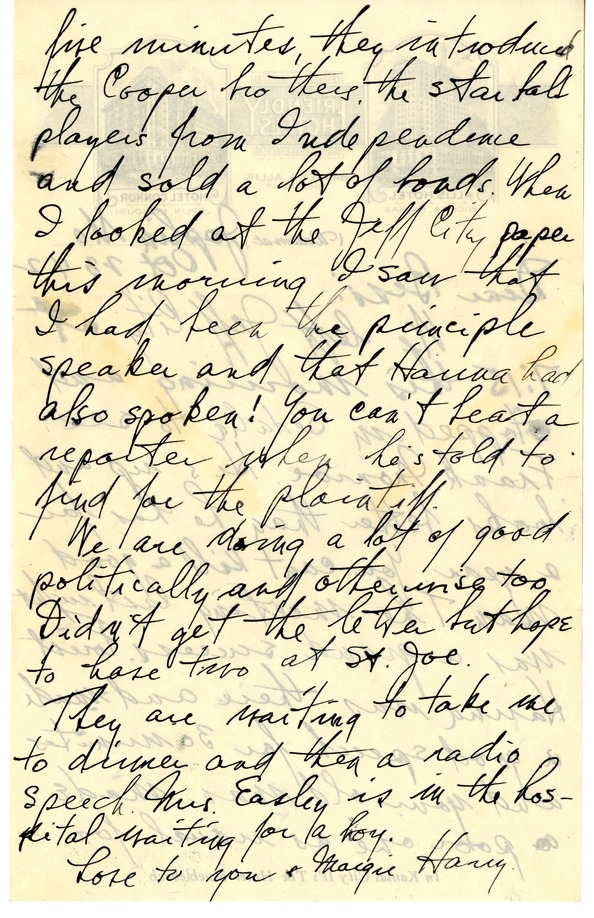 five minutes, they introduced
the Cooper brothers, the star ball
players from Independence
and sold a lot of bonds. When
I looked at the Jeff City paper
this morning I saw that
I had been the principle
speaker and that Hanna had
also spoken! You can't beat a
reporter when he's told to
find for the plaintiff.
We are doing a lot of good
politically and otherwise too
Didn't get the letter but hope
to have two at St. Joe.
They are waiting to take me
to dinner and then a radio
speech. Mrs. Easley is in the hos-
pital waiting for a boy.
Love to you & Margie Harry.